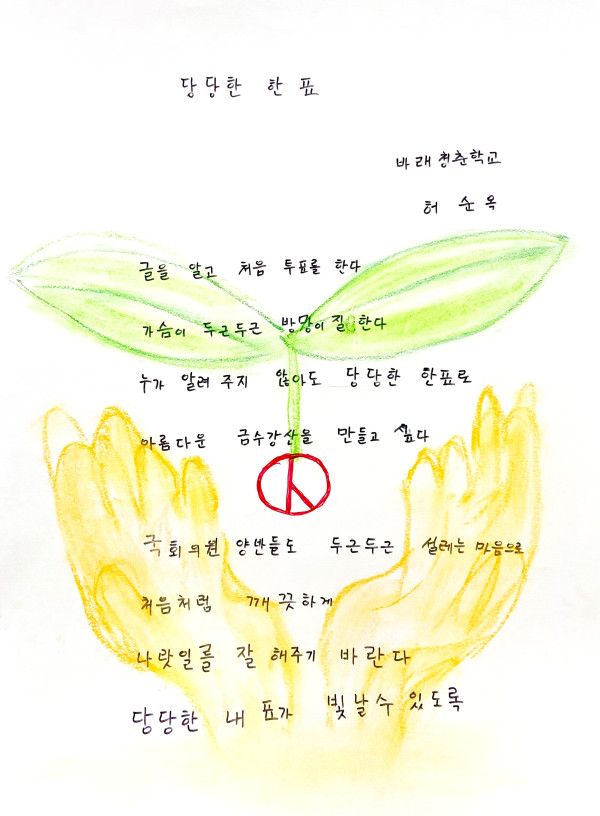 당당한 한 표
바래 청춘학교
허 순 옥
글을 알고 처음 투표를 한다
가슴이 두근두근 방망이질 한다
누가 알려 주지 않아도 당당한 한표로
아름다운 금수강산을 만들고 싶다
국회의원 양반들도 두근두근 설레는 마음으로
처음처럼 깨끗하게
나랏일를 잘 해주기 바란다
당당한 내 표가 빛날수 있도록